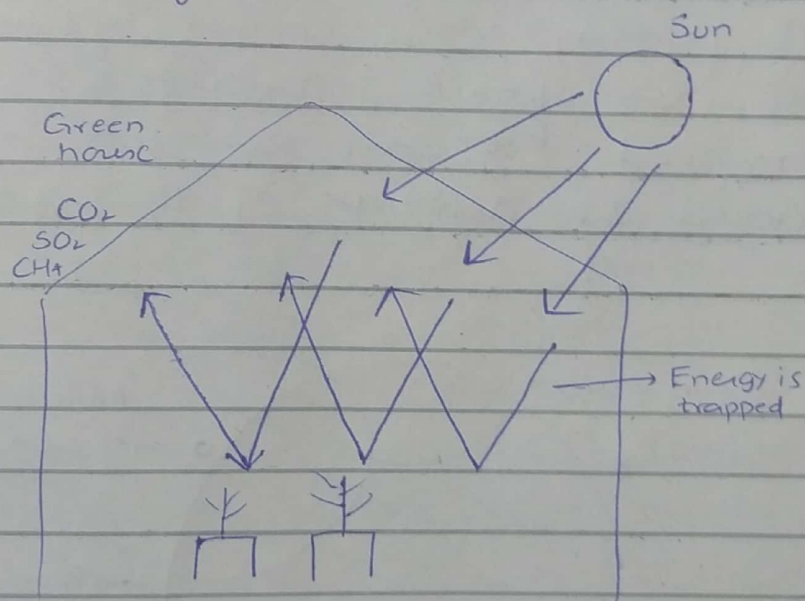 Sun
Green
house
CO₂
SO₂
CH₄
Energy is
trapped